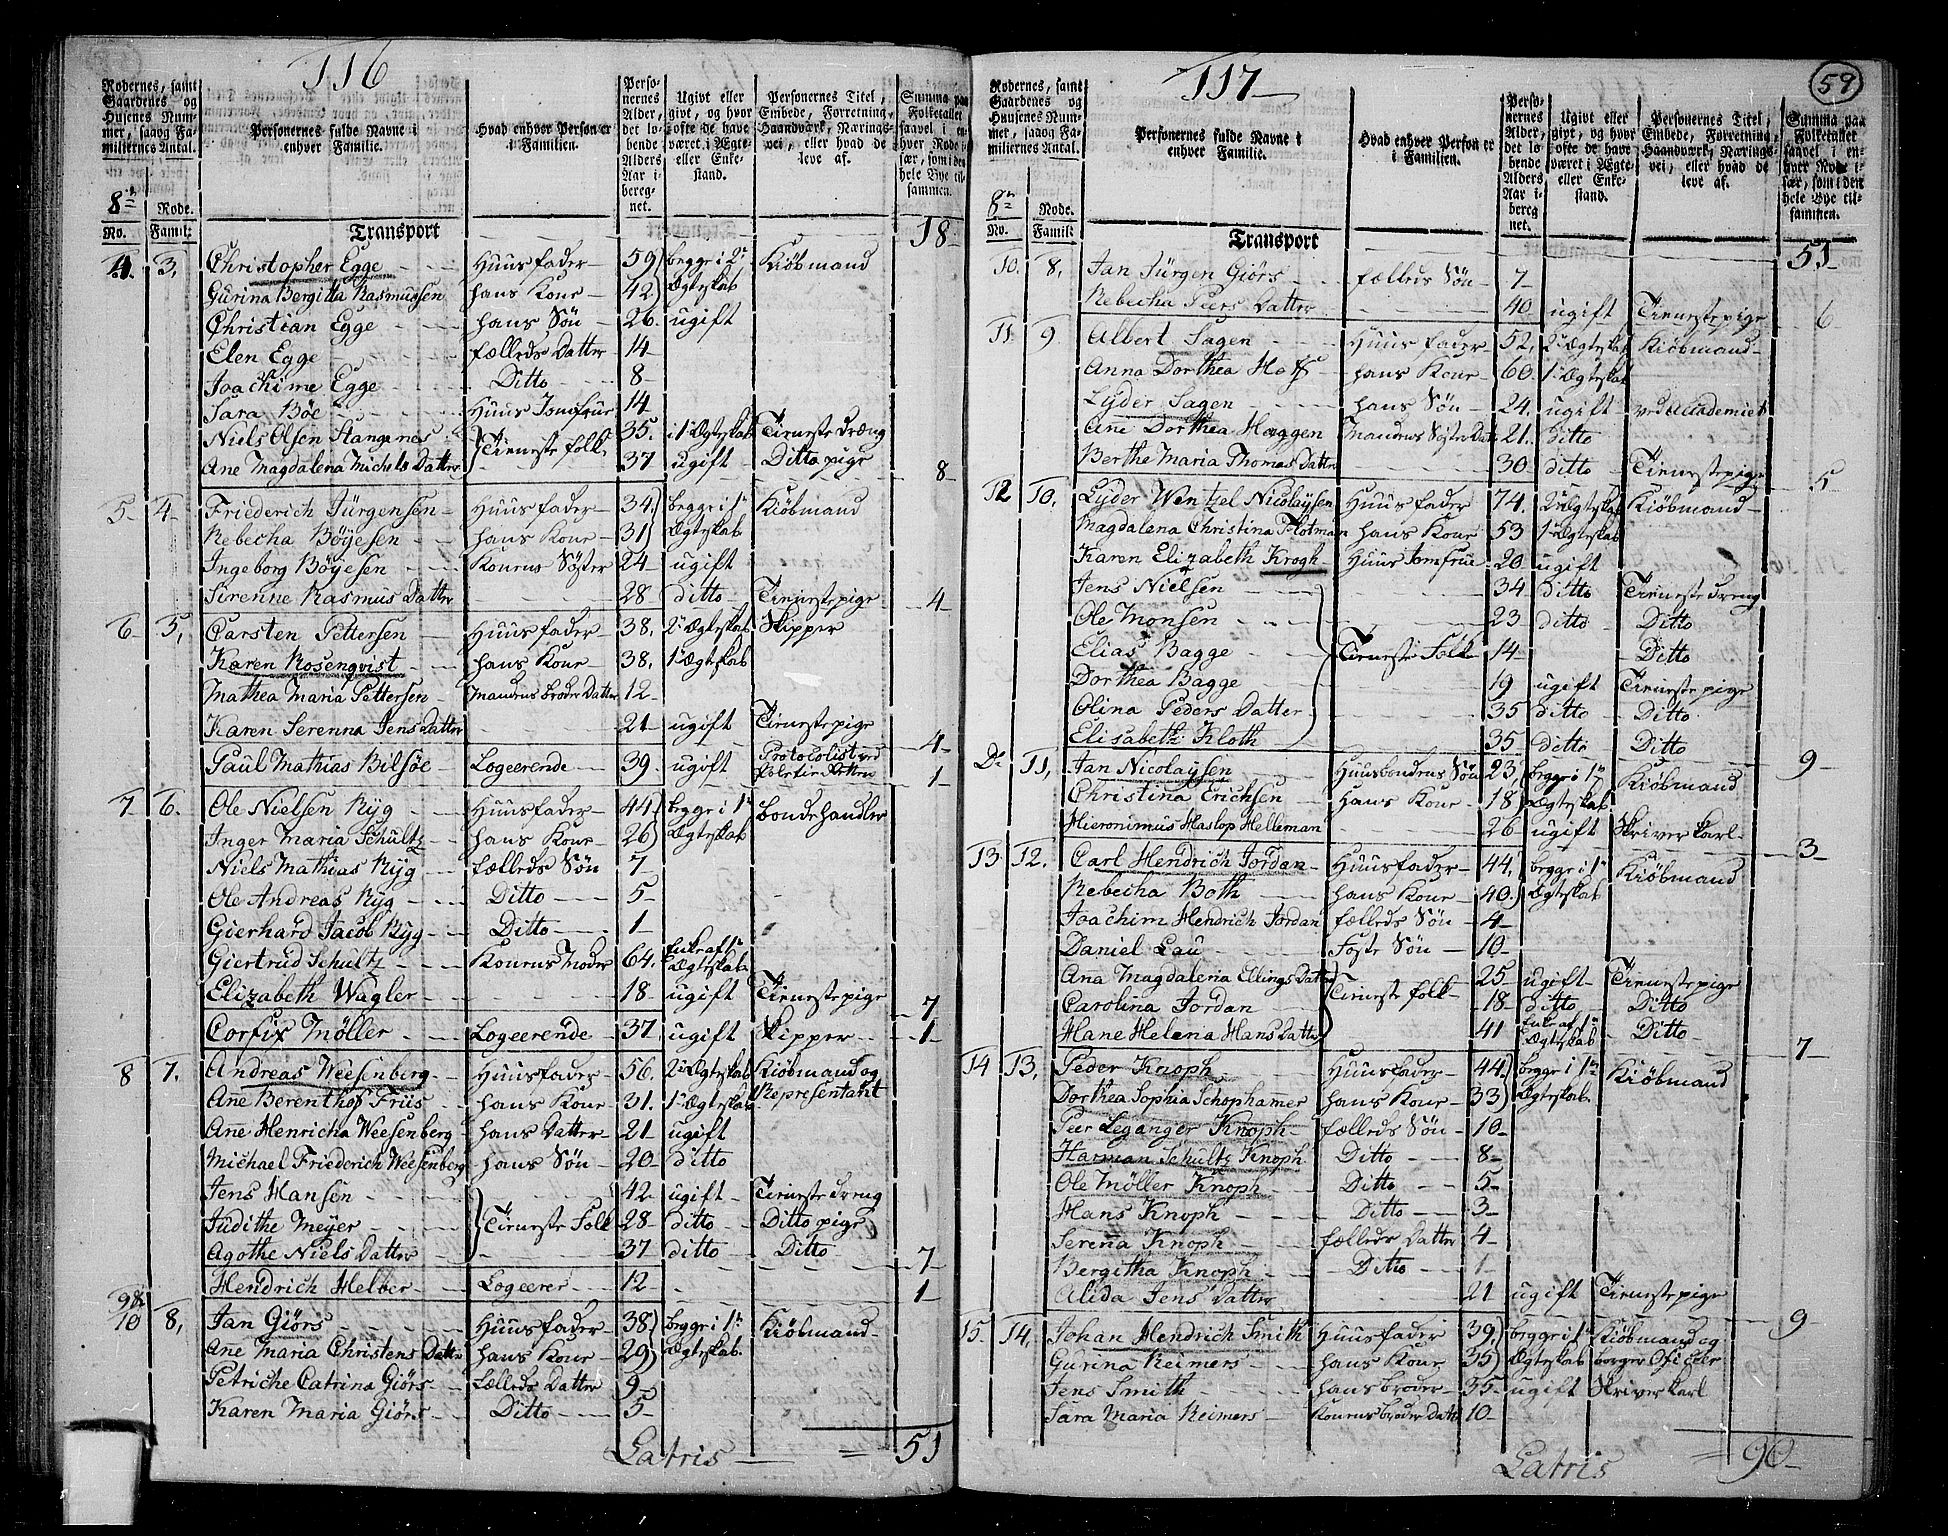 116
Rodernes, samt Gaardenes og Husenes Nummer, saavog Familiernes Antal.
Personernes fulde Navne i enhver Familie.
Hvad enhver Person er i Familien.
Personernes Alder, det løbende Alders Aar iberegnet.
Ugivt eller givt, og hvor ofte de have været i Ægte- eller Enkestand.
Personernes Titel, Embede, Forretning, Haandværk, Næringsvei, eller hvad de leve af.
Summa paa Folketallet saavel i enhver Rode især, som i den hele Bye tilsammen.
8de Rode.
No. Famil:
Transport 18
4. 3. Christopher Egge Huusfader 59 begge i 2t Kiøbmand
Gurina Bergitta Rasmussen hans Kone 42 Ægteskab
Christian Egge hans Søn 26 ugift
Elen Egge fælleds Datter 14
Joachime Egge Ditto 8
Sara Bøe Huus Jomfrue 14
Niels Olsen Stangenes Tieneste folk 35. i 1t Ægteskab Tieneste dræng
Ane Magdalena Michels Datter 37 ugift Ditto pige 8
5 4 Friederich Jürgensen Huusfader 34 begge i 1t Kiøbmand
Rebecha Böyesen hans Kone 31 Ægteskab
Ingeborg Böyesen Konens Søster 24 ugift
Sirenne Rasmus Datter 28 ditto Tienestepige 4
6 5, Carsten Pettersen Huusfader 38. 2t Ægteskab Skipper
Karen Rosenqvist hans Kone 38. 1t Ægteskab
Mathea Maria Pettersen Mandens broder Datter 12
Karen Serenna Jens Datter 21 ugift Tienestepige 4
Paul Mathias Bilsöe Logeerende 39. ugift Protocolist ved 1
7 6. Ole Nielsen Ryg Huusfader 44 begge i 1t bondehandler
Inger Maria Schultz hans Kone 26 Ægteskab
Niels Mathias Ryg fælleds Søn 7
Ole Andreas Ryg Ditto 5
Gierhard Jacob Ryg Ditto 1
Giertrud Schultz Konens Moder 64. Enke af 1t Ægteskab
Elizabeth Wagler 18 ugift Tienestepige 7
Corfix Möller Logeerende 37 ugift Skipper 1
8 7. Andreas Weesenberg Huusfader 56. 2t Ægteskab Kiøbmand og
Ane Berenthof Friis hans Kone 31. 1t Ægteskab Representant
Ane Henricha Weesenberg hans Datter 21 ugift
Michael Friederich Weesenberg hans Søn 20 ditto
Jens Hansen Tieneste Folk 42 ugift Tieneste dreng
Judithe Meyer 28 ditto Ditto pige
Agothe Niels Datter 37 ditto Ditto 7
Hendrich Helber Logeerer 12 1
9 & 10 8, Jan Giörs Huusfader 38 begge i 1t Kiøbmand
Ane Maria Christens Datter hans Kone 29 Ægteskab
Petriche Catrina Giörs fælleds Datter 9
Karen Maria Giörs Ditto 5
Latris 51
117
59
Rodernes, samt Gaardenes og Husenes Nummer, saavog Familiernes Antal.
Personernes fulde Navne i enhver Familie.
Hvad enhver Person er i Familien.
Personernes Alder, det løbende Alders Aar iberegnet.
Ugivt eller givt, og hvor ofte de have været i Ægte- eller Enkestand.
Personernes Titel, Embede, Forretning, Haandværk, Næringsvei, eller hvad de leve af.
Summa paa Folketallet saavel i enhver Rode især, som i den hele Bye tilsammen.
8de Rode.
No. Famil:
Transport 51
10. 8, Jan Jürgen Giörs fælleds Søn 7
Rebecha Peers Datter 40 ugift Tienestepige 6
11 9 Albert Sagen Huusfader 52. 2t Ægteskab Kiøbmand
Anna Dorthea Hoff hans Kone 60. 1t Ægteskab
Lyder Sagen hans Søn 24. ugift ved Academiet
Ane Dorthea Haggen Mandens Søster Dat: 21. ditto
Berthe Maria Thomas Datter 30 ditto Tienestepige 5
12 10. Lyder Wentzel Nicolaysen Huusfader 74. 2t Ægteskab Kiøbmand
Magdalena Christina Flotman hans Kone 53 1t Ægteskab
Karen Elizabeth Krogh Huus Jomfrue 20 ugift
Jens Nielsen 34 ditto Tieneste dreng
Ole Monsen 23 ditto Ditto
Elias Bagge Tieneste Folk 14 Ditto
Dorthea Bagge 19 ugift Tieneste pige
Olina Peders Datter 35 ditto Ditto
Elisabeth Kloth 35 ditto Ditto 9
Do 11, Jan Nicolaysen Huusbondens Søn 23 begge i 1t Kiøbmand
Christina Erichsen Hans Kone 18 Ægteskab
Hieronimus Haslop Helleman 26 ugift Skriver karl 3
13 12. Carl Hendrich Jordan Huusfader 44, begge i 1t Kiøbmand
Rebecha Both hans Kone 40. Ægteskab
Joachim Hendrich Jordan fælleds Søn 4
Daniel Lau Foste Søn 10
Ana Magdalena Ellings Datter Tieneste folk 25 ugift Tienestepige
Carolina Jordan 18 ditto Ditto
Hane Helena Hans Datter 41 Enke af 1t Ægteskab Ditto 7
14 13, Peder Knoph Huusfader 44. begge i 1t Kiøbmand
Dorthea Sophia Schophamer hans Kone 33 Ægteskab
Peer Leganger Knoph fælleds Søn 10
Harman Schultz Knoph Ditto 8
Ole Möller Knoph Ditto 5
Hans Knoph Ditto 3
Serena Knoph fælleds Datter 4
Bergitha Knoph Ditto 1
Alida Jens Datter 21 ugift Tienestepige 9
15 14, Johan Hendrich Smith Huusfader 39. begge i 1t Kiøbmand og
Gurina Reimers hans Kone 35 Ægteskab borger Oficier
Jens Smith hans broder 35 ugift Skriver karl
Sara Maria Reimers Konens broder Datt: 10
Latris 90